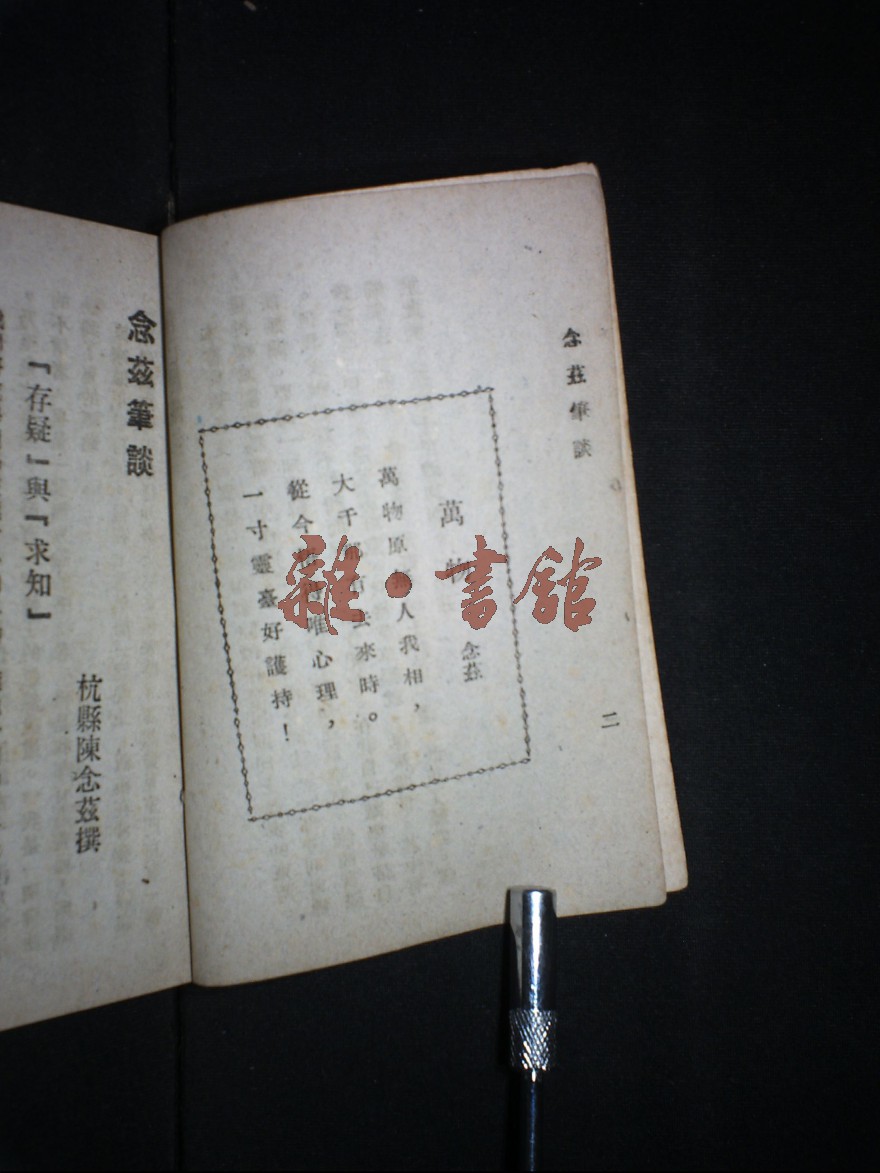 念茲筆談
二
萬物
念茲
萬物原人我相，
大千來時。
從今唯心理，
一寸靈臺好護持！
雜·書館
念茲筆談
『存疑』與『求知』
杭縣陳念茲撰